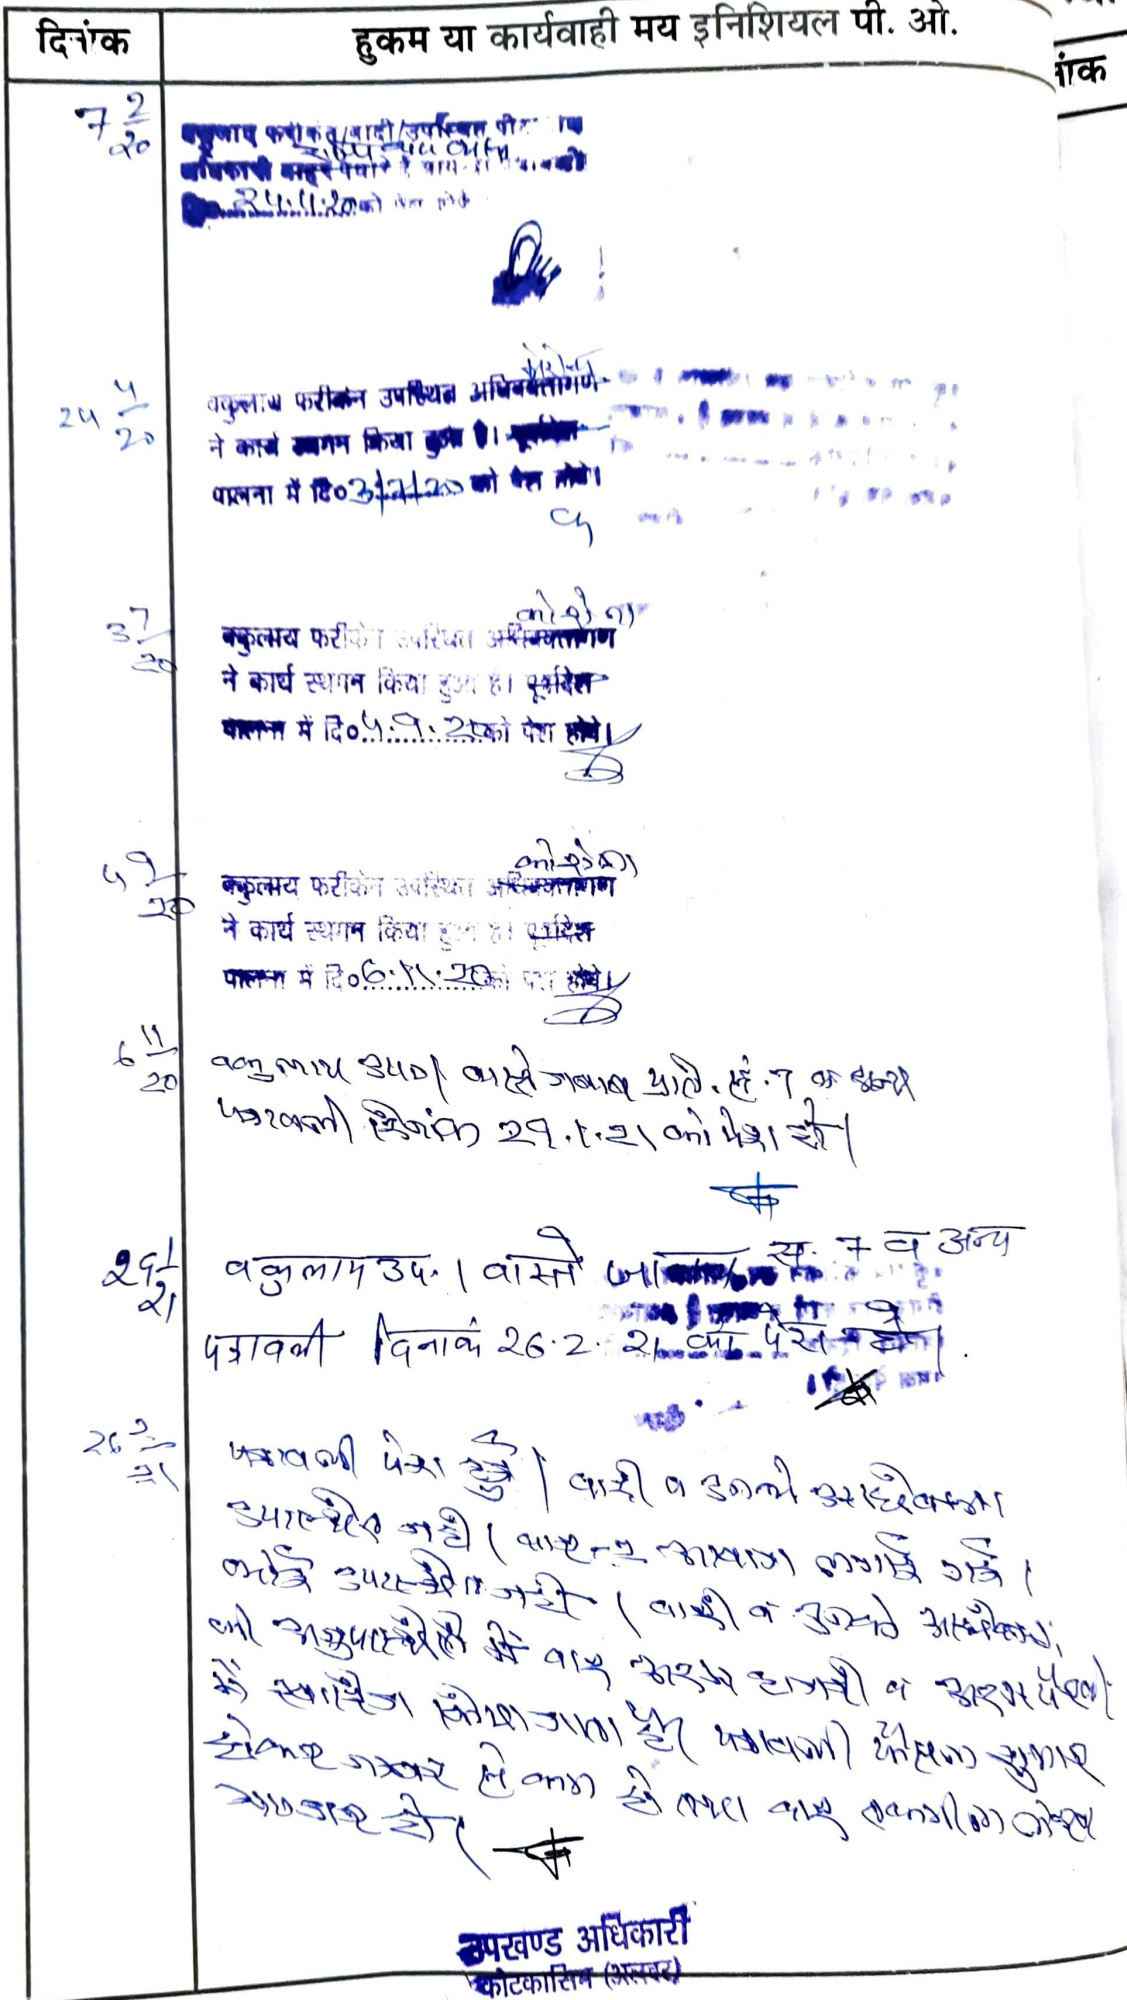 दिनांक
हुकम या कार्यवाही मय इनिशियल पी. ओ.
नांक
7 2/20
वकुलाय फरीकेन/वादी/उपस्थित
24.4.20 को पेश होवे
24 4/20
कोरोना
वकुलाय फरीकेन उपस्थित अभिवक्तागण
ने कार्य स्थगन किया हुआ है। पूर्वादेश
पालना में दि० 3/7/20 को पेश होवे।
3 7/20
कोरोना
वकुलाय फरीकेन उपस्थित अभिवक्तागण
ने कार्य स्थगन किया हुआ है। पूर्वादेश
पालना में दि० 4.9.20 को पेश होवे।
4 9/20
कोरोना
वकुलाय फरीकेन उपस्थित अभिवक्तागण
ने कार्य स्थगन किया हुआ है। पूर्वादेश
पालना में दि० 6.11.20 को पेश होवे।
6 11/20
वकुलाय उप0। वास्ते जबाब प्राति. सं. 7 व अन्य
पत्रावली दिनांक 29.1.21 को पेश हो।
29 1/21
वकुलाय उप.। वास्ते स. 7 व अन्य
पत्रावली दिनाकं 26.2.21 को पेश हो।
26 2/21
पत्रावली पेश हुई। वादी व उनके अधिवक्ता
उपस्थित नही। बार-2 आवाज लगाई गई।
कोई उपस्थित नही। वादी व उनके अधिवक्ता
की अनुपस्थिति में वाद अदम हाजरी व अदम पैरवी
में खारिज किया जाता है। पत्रावली फैसल शुमार
होकर नम्बर से कम हो तथा बाद तकमील
हो।
उपखण्ड अधिकारी
कोटकासिम (अलवर)